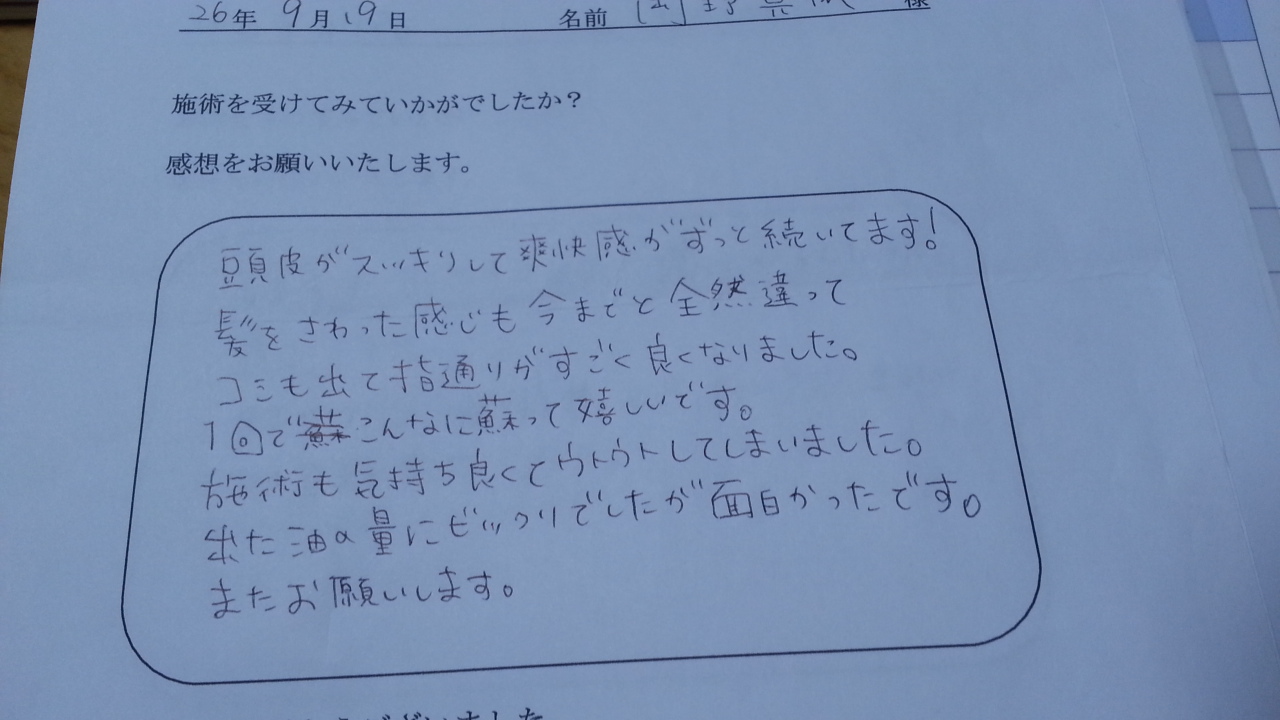 26年 9月19日 名前 様
施術を受けてみていかがでしたか？
感想をお願いいたします。
頭皮がスッキリして爽快感がずっと続いてます！
髪をさわった感じも今までと全然違って
コシも出て指通りがすごく良くなりました。
1回でこんなに蘇って嬉しいです。
施術も気持ち良くてウトウトしてしまいました。
出た油の量にビックリでしたが面白かったです。
またお願いします。
ございました